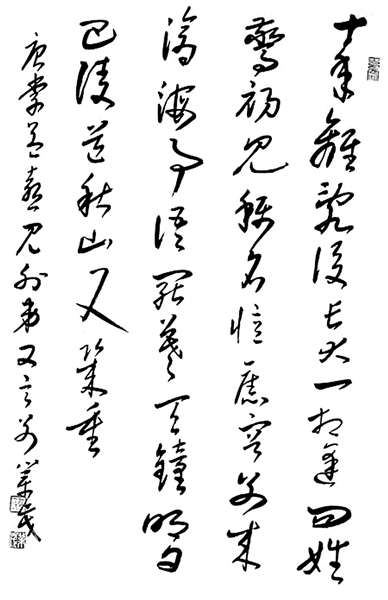 十年離亂後長大一相逢問姓
驚初見稱名憶舊容別來
滄海事語罷暮天鐘明日
巴陵道秋山又幾重
唐李益喜見外弟又言別